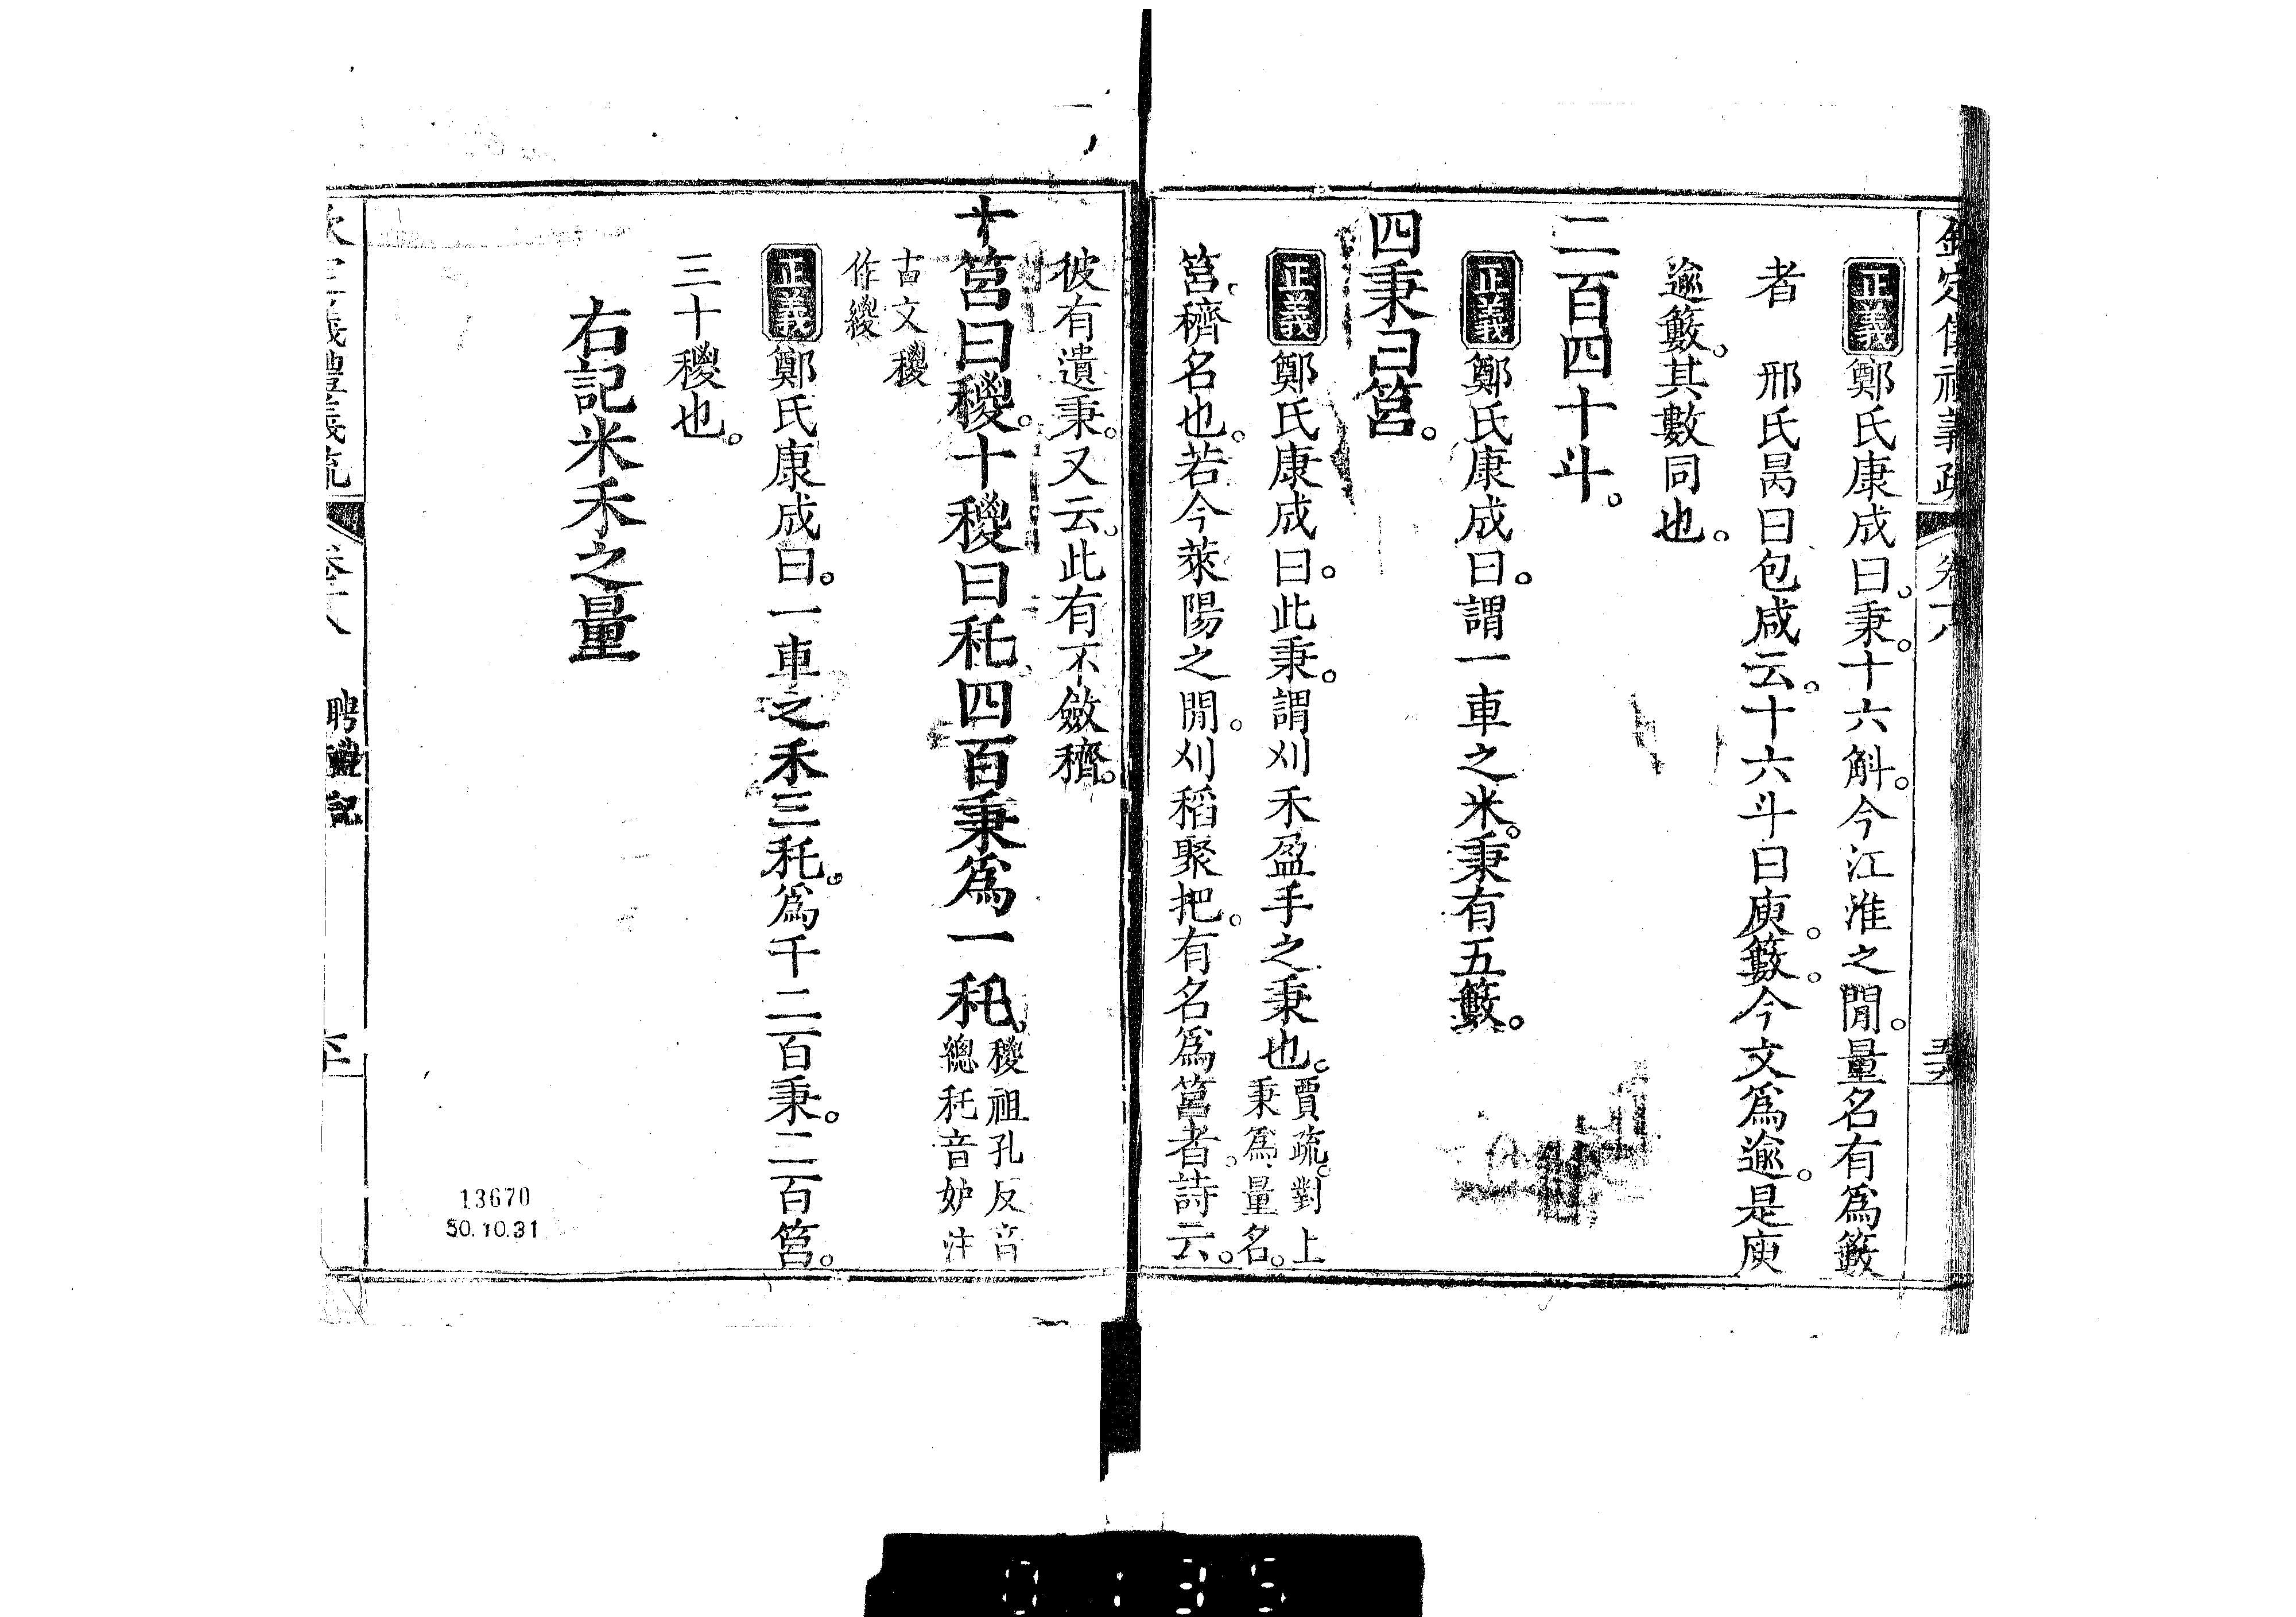 欽定儀禮義疏 卷十八
正義鄭氏康成曰。秉。十六斛。今江淮之閒。量名有爲籔
者 邢氏昺曰包咸云。十六斗曰庾。籔。今文爲逾。是庾
逾籔。其數同也。
二百四十斗。
正義鄭氏康成曰。謂一車之米。秉有五籔。
四秉曰筥。
正義鄭氏康成曰。此秉。謂刈禾盈手之秉也。賈疏。對上
秉爲量名。
筥。穧名也。若今萊陽之閒。刈稻聚把。有名爲筥者。詩云。
彼有遺秉。又云。此有不斂穧。
十筥曰稯。十稯曰秅。四百秉爲一秅。稯祖孔反音
總秅音妒注
古文稯
作緵
正義鄭氏康成曰。一車之禾三秅。爲千二百秉。二百筥。
三十稯也。
右記米禾之量
儀禮義疏 卷十八 聘禮記
13670
50.10.31
0135